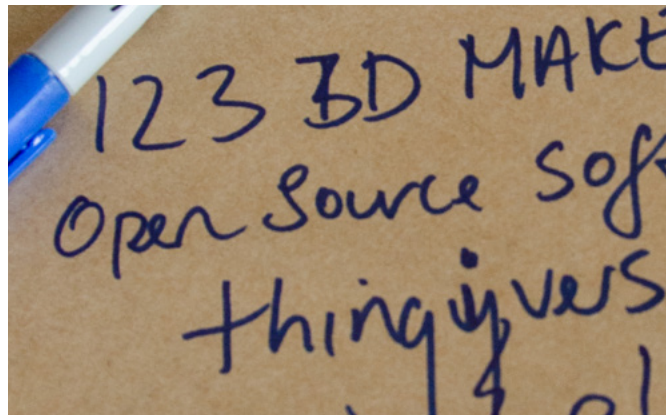 123 3D MAKE
Open Source Sof
thingivers